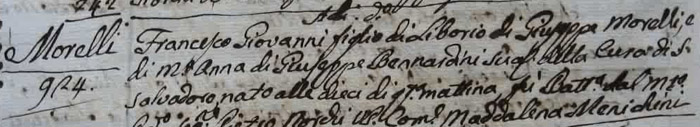 242
Adì do
Morelli
924.
Francesco Giovanni figlio di Liborio di Giuseppe Morelli, e
di Mª Anna di Giuseppe Bernardini sua della Cura di S.
Salvadore, nato alle dieci di qª mattina, fù Battº dal mº
Pietro Comº Maddalena Menichini